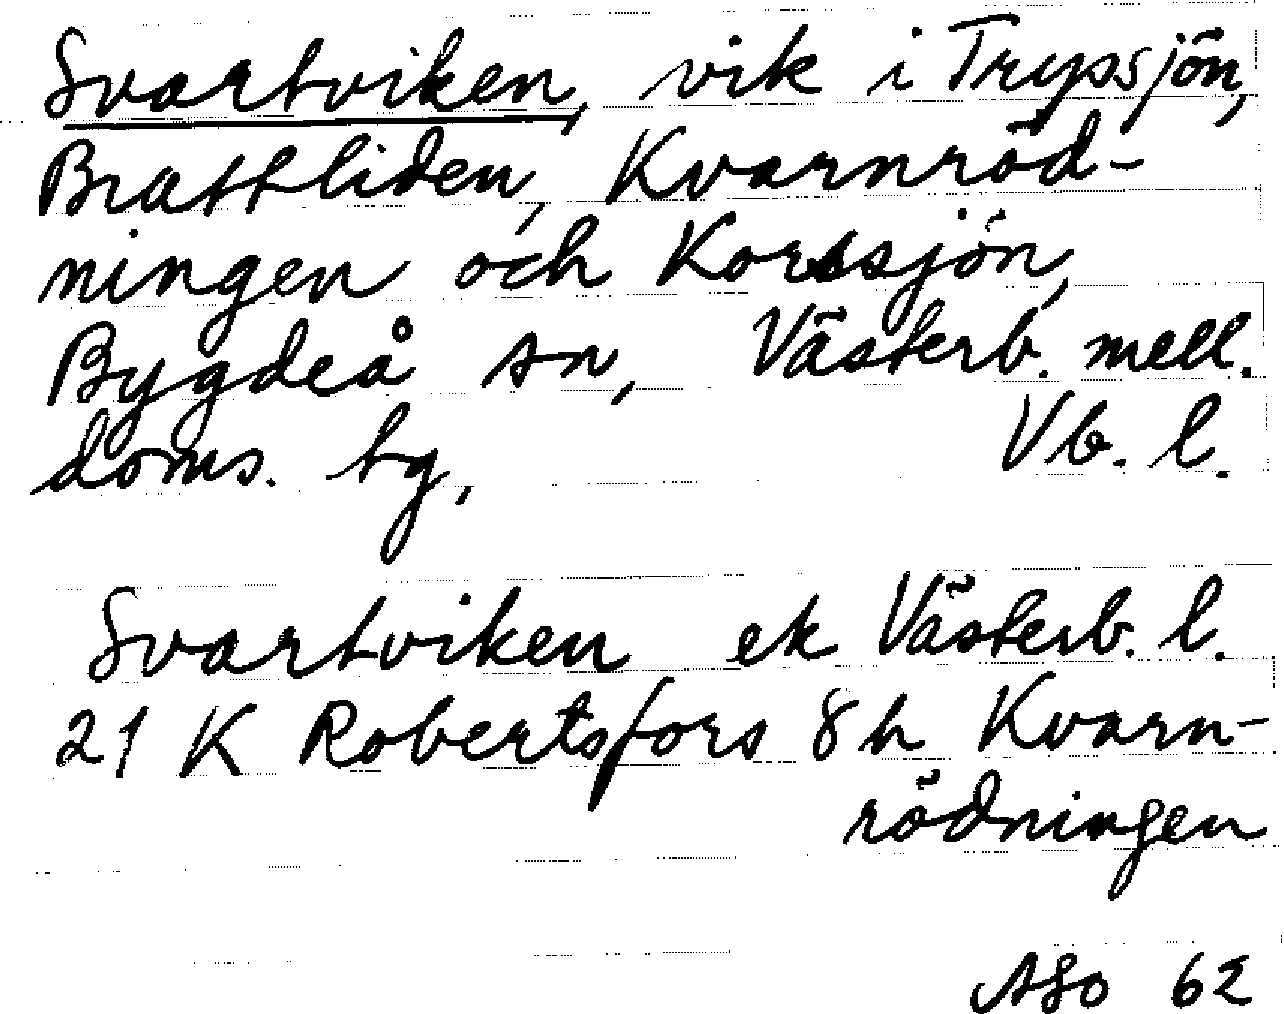 Svartviken, vik i Trypsjön,
Brattliden, Kvarnröd-
ningen och Korssjön,
Bygdeå sn, Västerb. mell.
doms. tg, Vb. l.
Svartviken ek Västerb. l.
21 K Robertsfors 8 h Kvarn-
rödningen
ASo 62